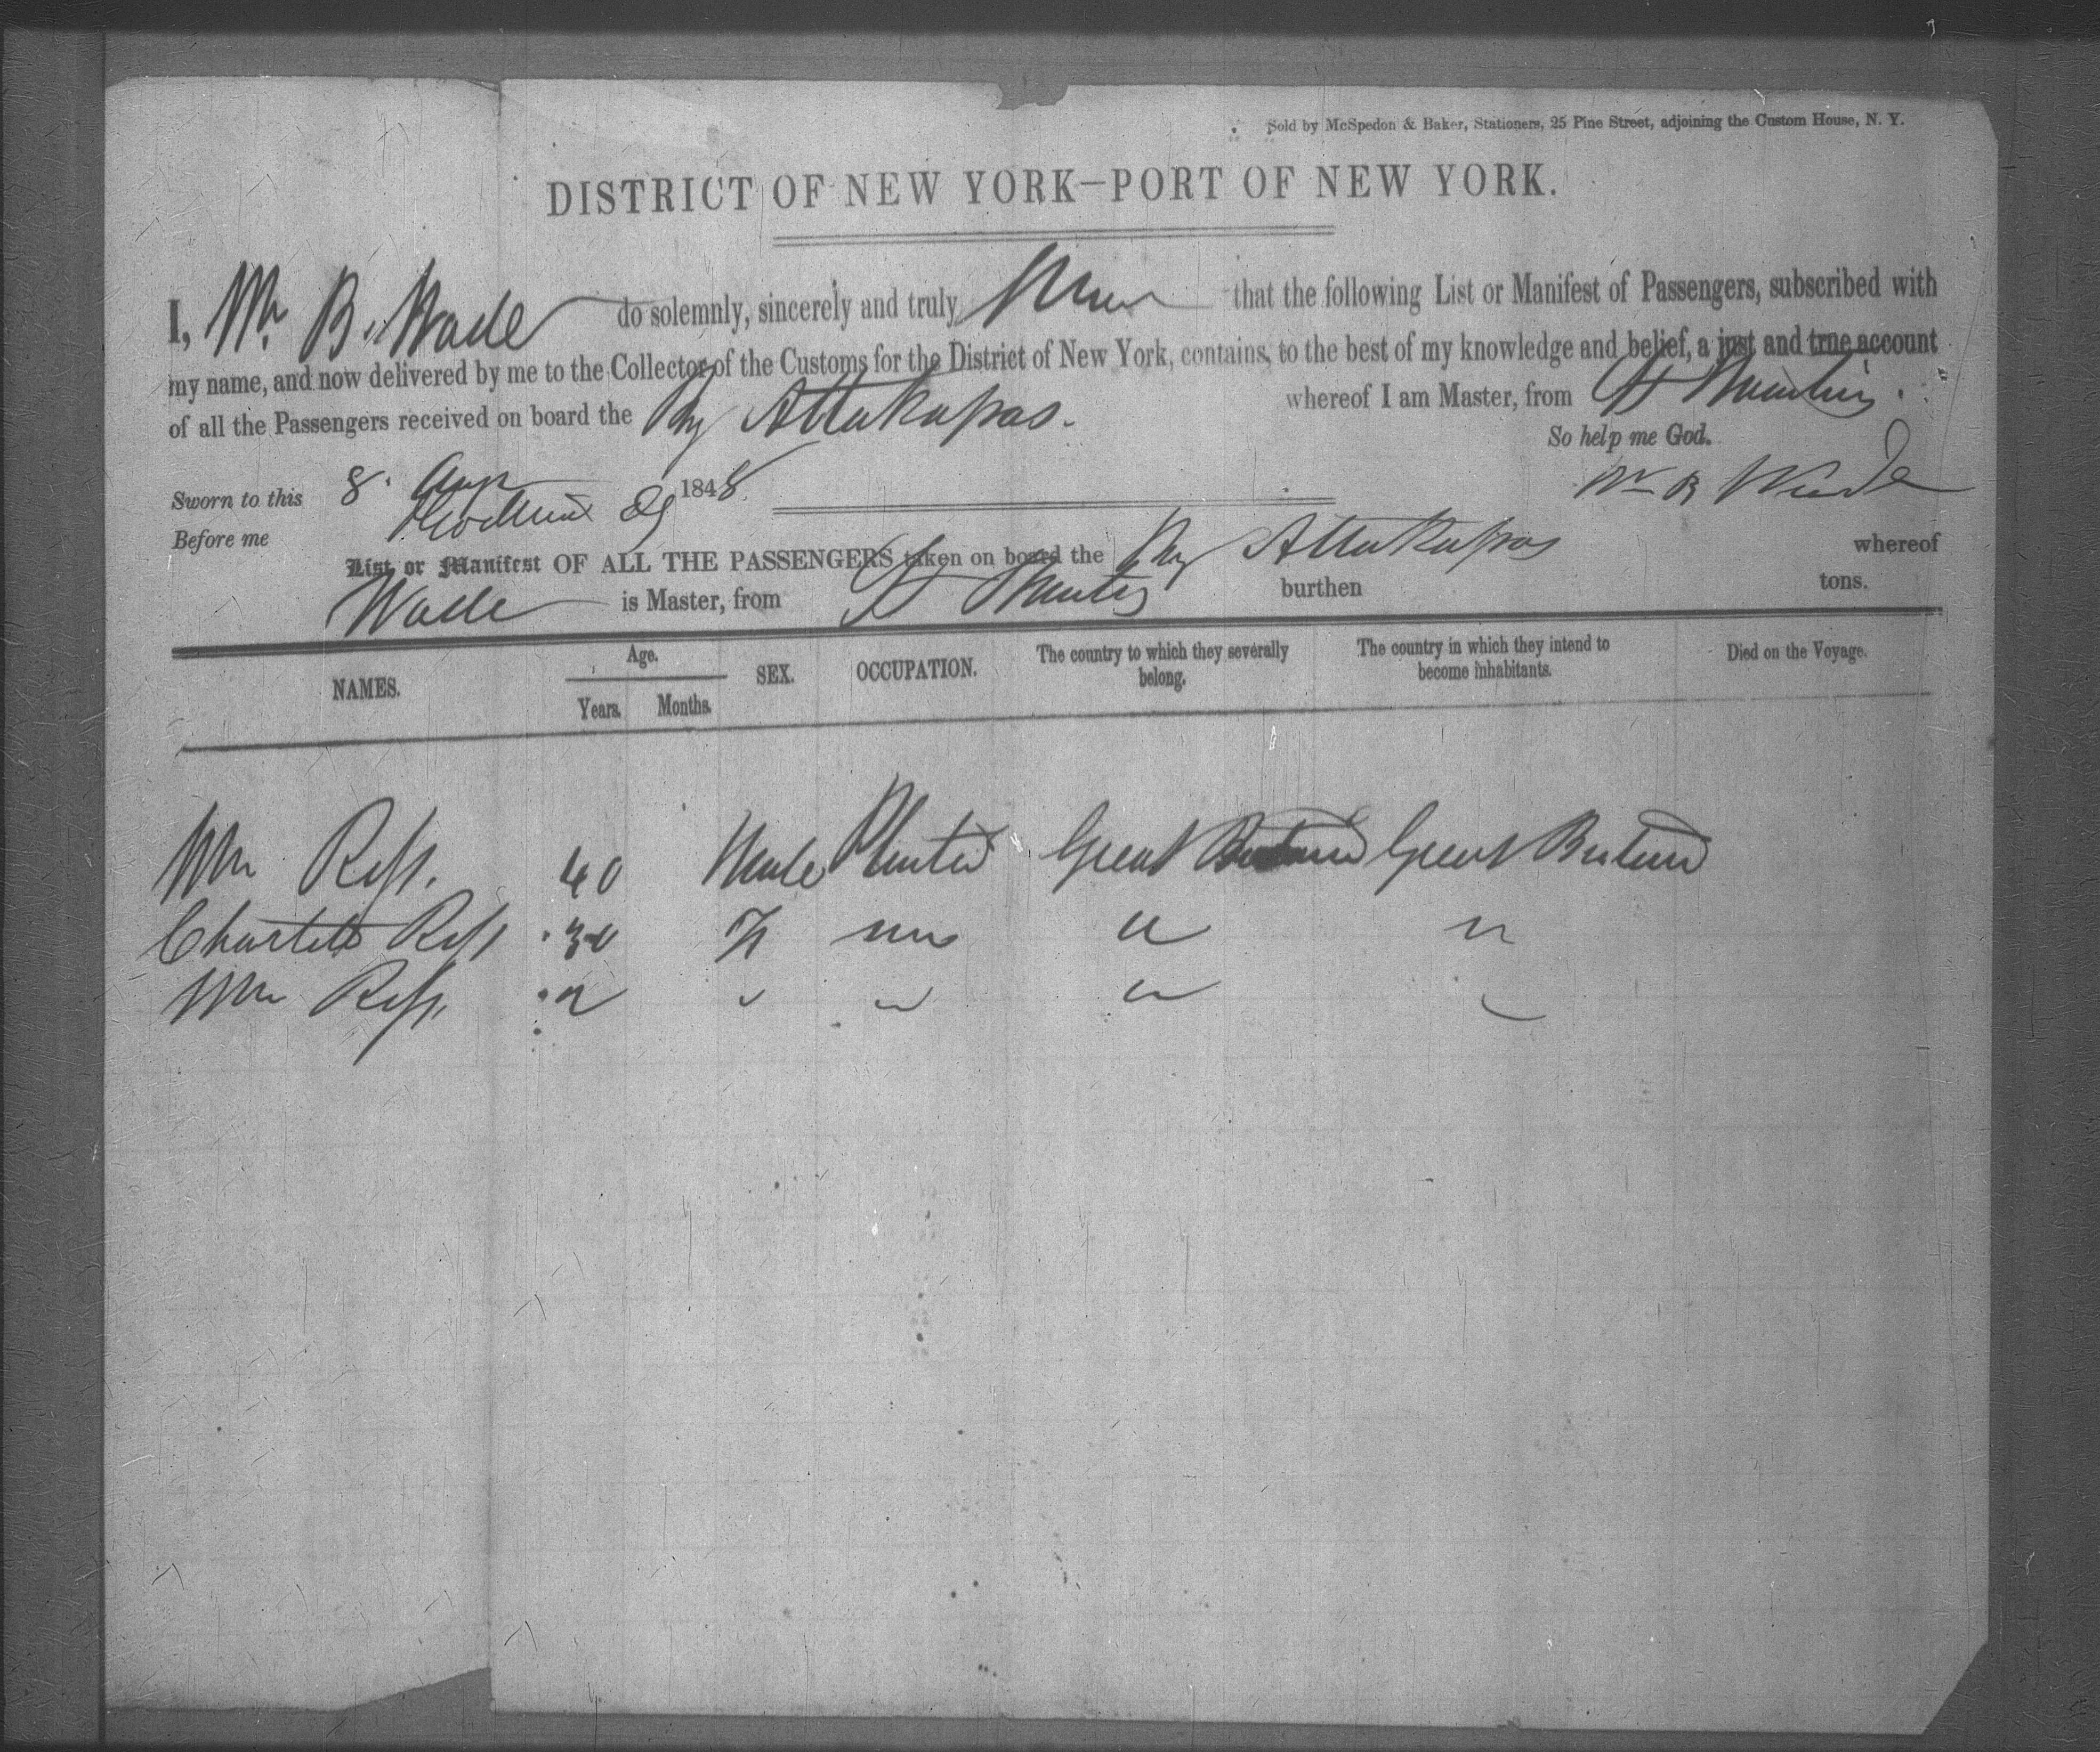 Sold by McSpedon & Baker, Stationers, 25 Pine Street, adjoining the Custom House, N. Y.
DISTRICT OF NEW YORK—PORT OF NEW YORK.
I, Wm B. Wade do solemnly, sincerely and truly Swear that the following List or Manifest of Passengers, subscribed with
my name, and now delivered by me to the Collector of the Customs for the District of New York, contains, to the best of my knowledge and belief, a just and true account
of all the Passengers received on board the Brg Attakapas. whereof I am Master, from St Martins.
So help me God.
Sworn to this 8. Aug 1848 Wm B Wade
Before me
List or Manifest OF ALL THE PASSENGERS taken on board the Brg Attakapas whereof
Wade is Master, from St Martins burthen tons.
NAMES. Age. Years. Months. SEX. OCCUPATION. The country to which they severally belong. The country in which they intend to become inhabitants. Died on the Voyage.
Wm 40 Male Planter Great Britain Great Britain
30 F " "
Wm 2 " " " "